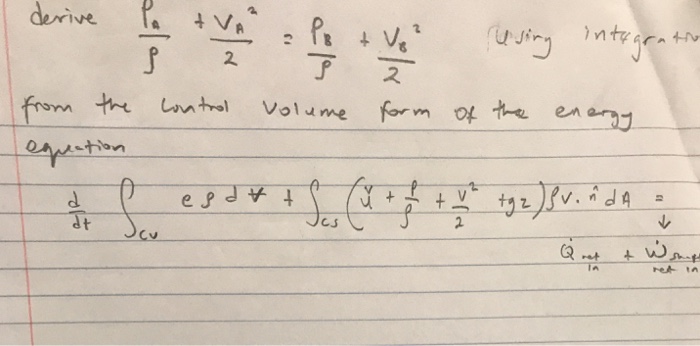 derive P_A/ρ + V_A²/2 = P_B/ρ + V_B²/2 (using integration
from the control volume form of the energy
equation
d/dt ∫_cv e ρ d∀ + ∫_cs (ǔ + P/ρ + V²/2 + gz) ρ v · n̂ dA =
Q̇ net in + Ẇ shaft net in